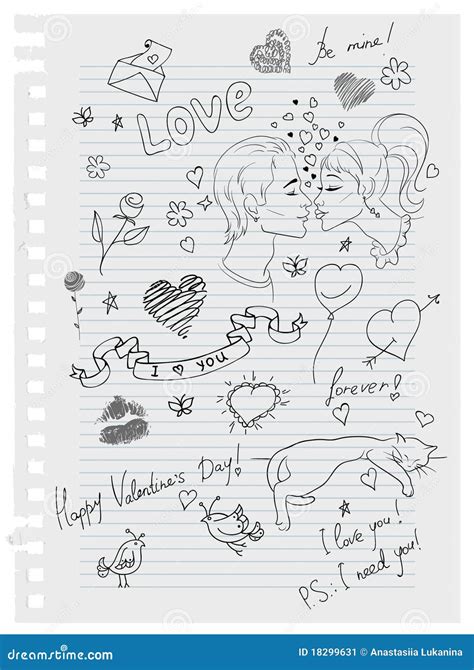 Be mine!
LOVE
I ♥ you
forever!
Happy Valentine's Day!
I love you!
P.S.: I need you!
dreamstime.com
ID 18299631 © Anastasiia Lukanina